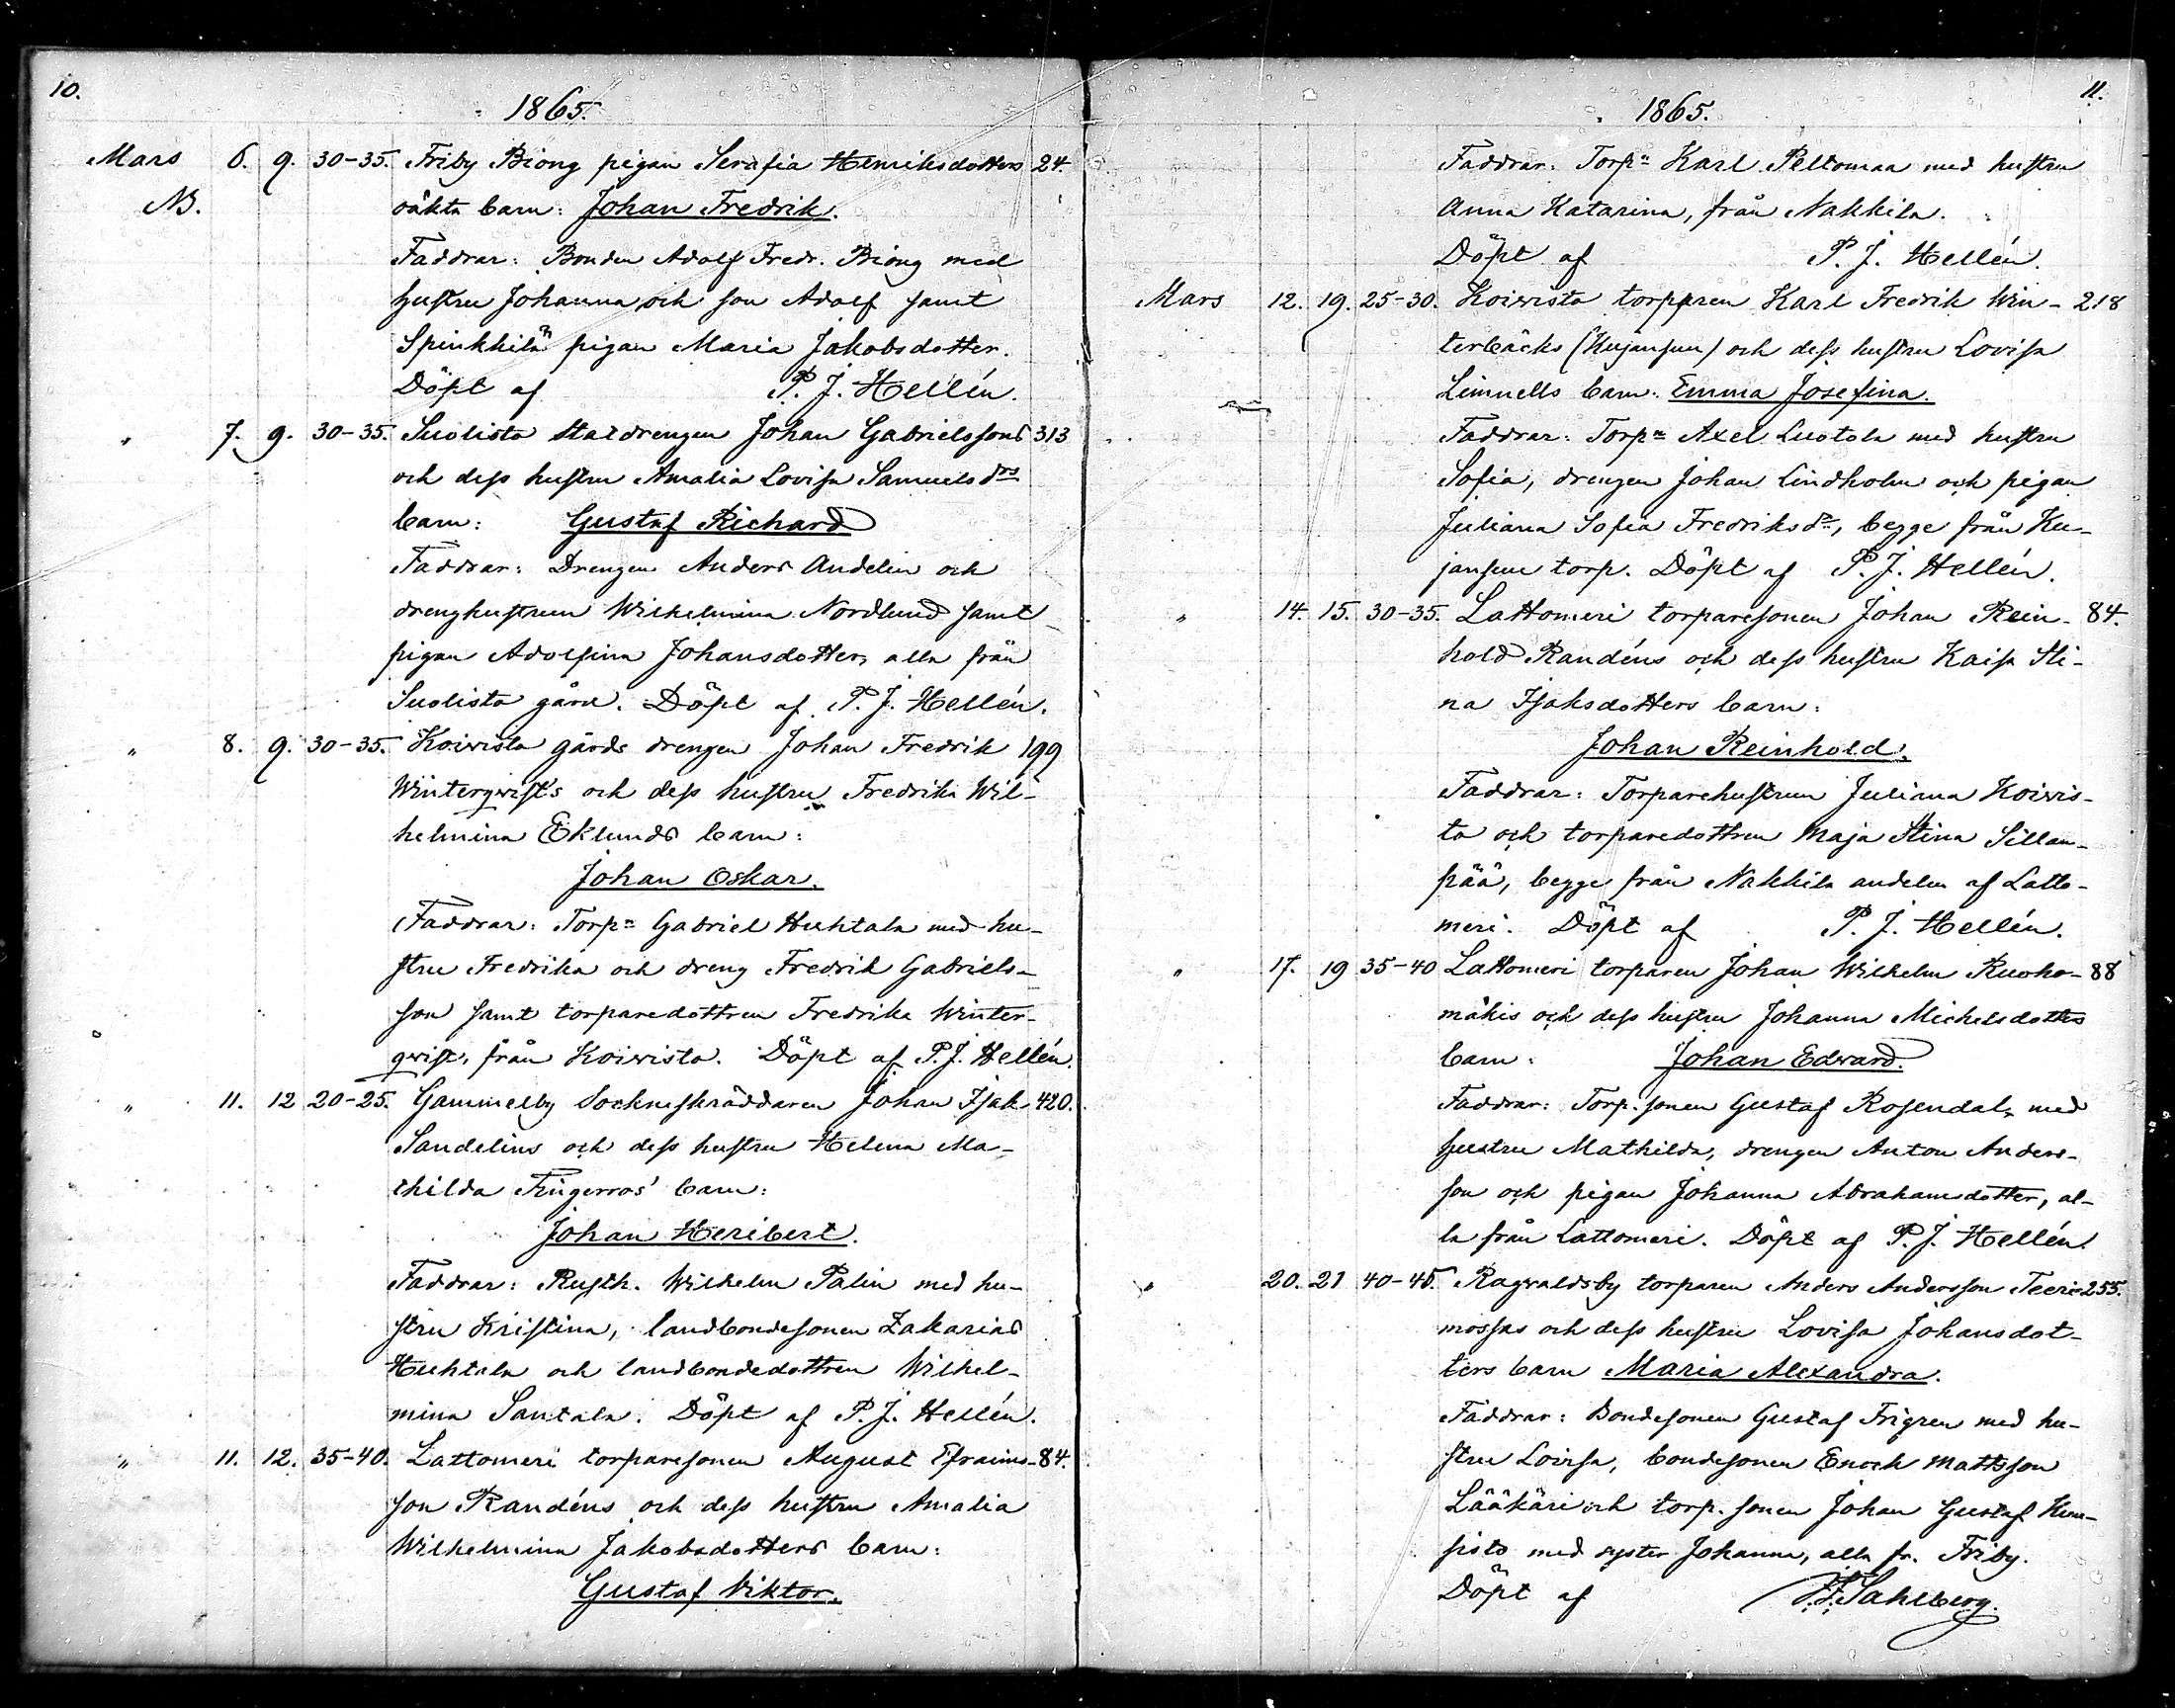 10.
1865.
Mars 6. 9. 30-35. Friby Biong pigan Serafia Henriksdotters 24.
NB. oäkta barn: Johan Fredrik.
Faddrar: Bonden Adolf Fredr. Biong med
hustru Johanna och son Adolf samt
Spinkkilä pigan Maria Jakobsdotter.
Döpt af P. J. Hellén.
" 7. 9. 30-35. Suolisto staldrengen Johan Gabrielssons 313
och dess hustru Amalia Lovisa Samuelsdrs
barn: Gustaf Richard
Faddrar: Drengen Anders Andelin och
drenghustrun Wilhelmina Nordlund samt
pigan Adolfina Johansdotter, alla från
Suolisto gård. Döpt af P. J. Hellén.
" 8. 9. 30-35. Koivisto gårds drengen Johan Fredrik 199
Winterqvists och dess hustru Fredrika Wil-
helmina Eklunds barn:
Johan Oskar.
Faddrar: Torpn Gabriel Huhtala med hu-
stru Fredrika och dreng Fredrik Gabriels-
son samt torparedottren Fredrika Winter-
qvist, från Koivisto. Döpt af P. J. Hellén.
" 11. 12 20-25. Gammelby Sockneskräddaren Johan Isak 420.
Sandelins och dess hustru Helena Ma-
thilda Fingerroos' barn:
Johan Heribert.
Faddrar: Rusth. Wilhelm Palin med hu-
stru Kristina, landbondesonen Zakarias
Huhtala och landbondedottren Wilhel-
mina Santala. Döpt af P. J. Hellén.
" 11. 12. 35-40. Lattomeri torparesonen August Efraims- 84.
son Randéns och dess hustru Amalia
Wilhelmina Jakobsdotters barn:
Gustaf Viktor.
11.
1865.
Faddrar: Torpn Karl Peltomaa med hustru
Anna Katarina, från Nakkila.
Döpt af P. J. Hellén.
Mars 12. 19. 25-30. Koivisto torparen Karl Fredrik Win- 218
terbäcks (Kujansuu) och dess hustru Lovisa
Limnells barn: Emma Josefina.
Faddrar: Torpn Axel Luotola med hustru
Sofia, drengen Johan Lindholm och pigan
Juliana Sofia Fredriksdr, begge från Ku-
jansuu torp. Döpt af P. J. Hellén.
" 14. 15. 30-35. Lattomeri torparesonen Johan Rein- 84.
hold Randéns och dess hustru Kaisa Sti-
na Isaksdotters barn:
Johan Reinhold.
Faddrar: Torparehustrun Juliana Koivis-
to och torparedottren Maja Stina Sillan-
pää, begge från Nakkila andelen af Latto-
meri. Döpt af P. J. Hellén.
" 17. 19 35-40 Lattomeri torparen Johan Wilhelm Ruoho- 88
mäkis och dess hustru Johanna Michelsdotters
barn: Johan Edvard.
Faddrar: Torp. sonen Gustaf Rosendal, med
hustru Mathilda, drengen Anton Anders-
son och pigan Johanna Abrahamsdotter, al-
la från Lattomeri. Döpt af P. J. Hellén.
" 20. 21 40-45. Ragvaldsby torparen Anders Andersson Teeri- 255.
mossas och dess hustru Lovisa Johansdot-
ters barn Maria Alexandra.
Faddrar: Bondesonen Gustaf Frigren med hu-
stru Lovisa, bondesonen Enoch Mattsson
Lääkäri och torp. sonen Johan Gustaf Kum-
pisto med syster Johanna, alla fr. Friby.
Döpt af F. Sahlberg.